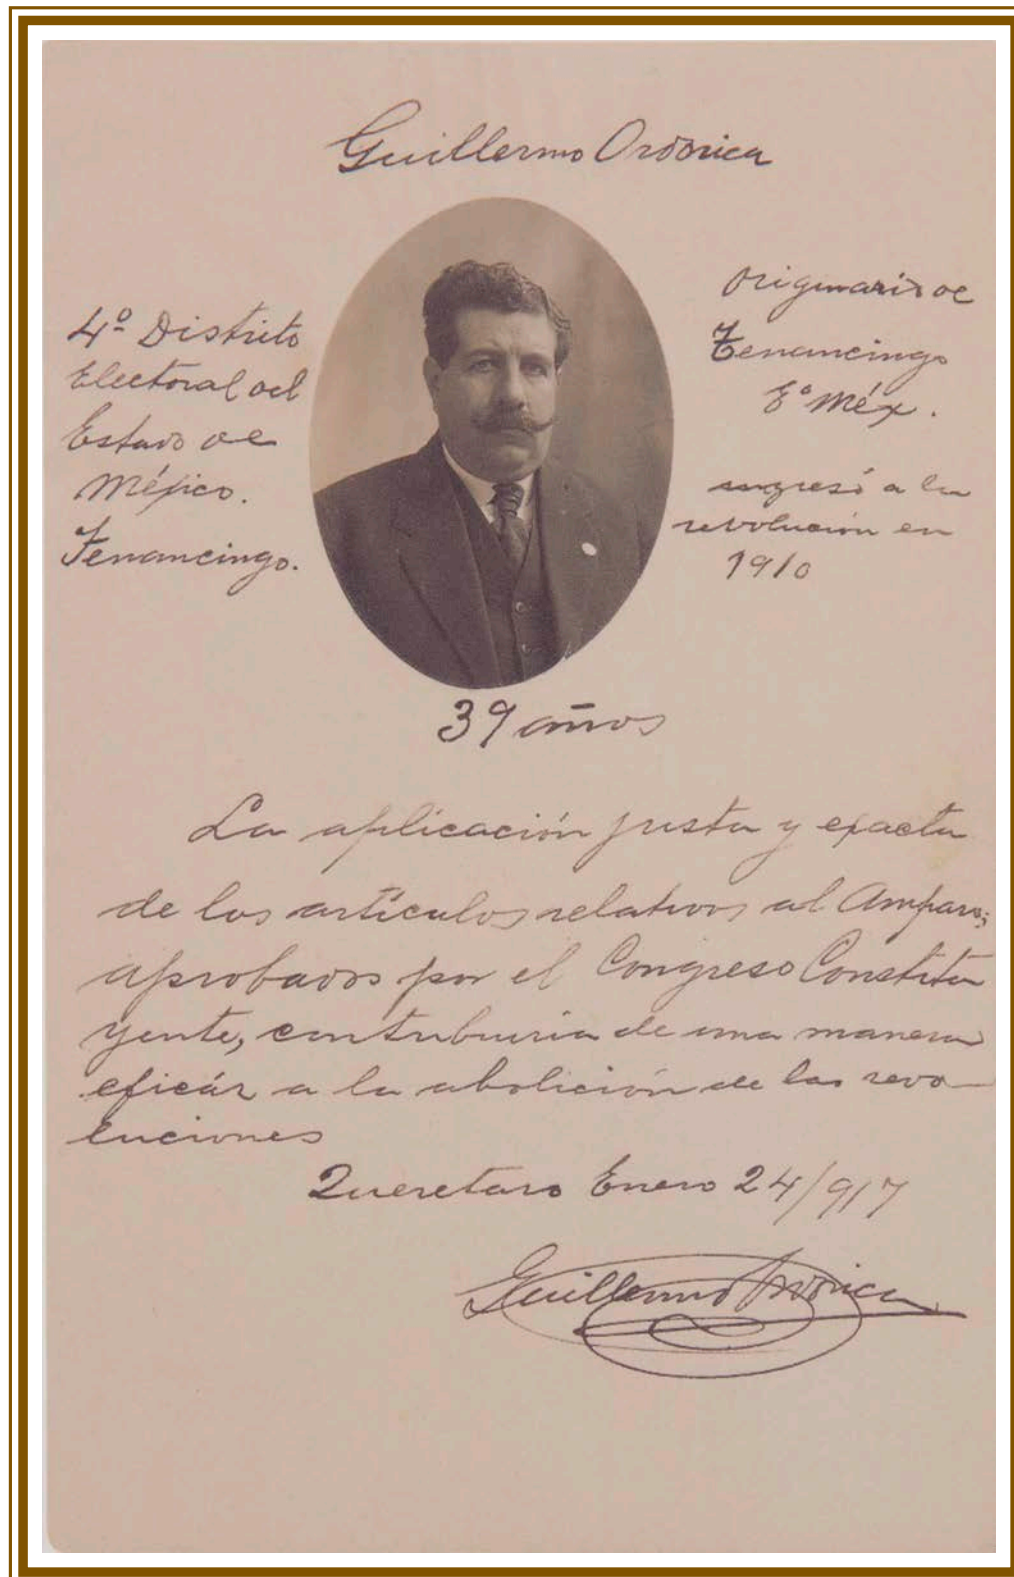 Guillermo Ordorica
4º Distrito
Electoral del
Estado de
Méjico.
Tenancingo.
Originario de
Tenancingo
Eº Méx.
ingresó a la
revolución en
1910
39 años
La aplicación justa y exacta
de los artículos relativos al Amparo,
aprobados por el Congreso Constitu
yente, contribuiria de una manera
eficáz a la abolición de las revo
luciones
Queretaro Enero 24/917
Guillermo Ordorica